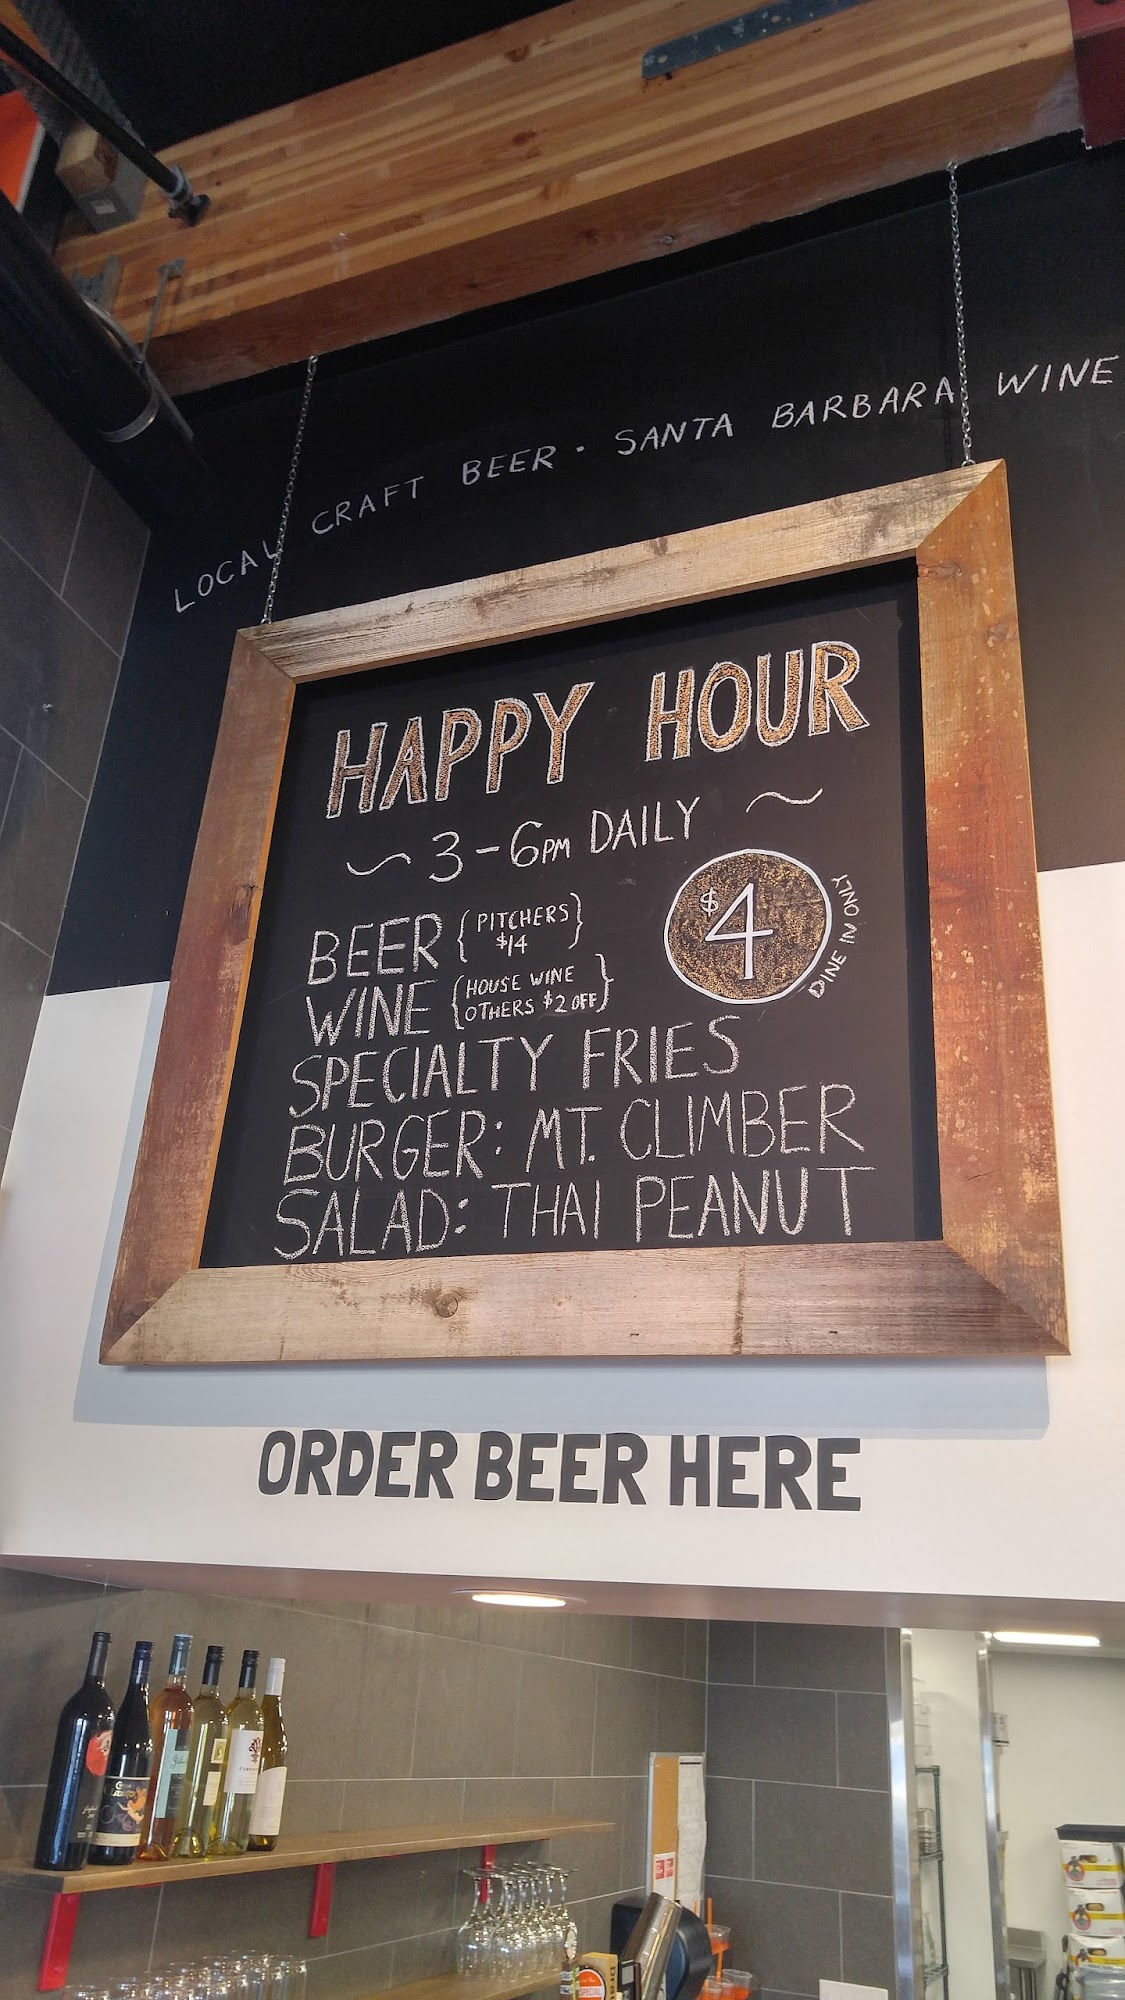 LOCAL CRAFT BEER · SANTA BARBARA WINE
HAPPY HOUR
~ 3-6PM DAILY ~
BEER {PITCHERS $14}
$4
DINE IN ONLY
WINE {HOUSE WINE
OTHERS $2 OFF}
SPECIALTY FRIES
BURGER: MT. CLIMBER
SALAD: THAI PEANUT
ORDER BEER HERE